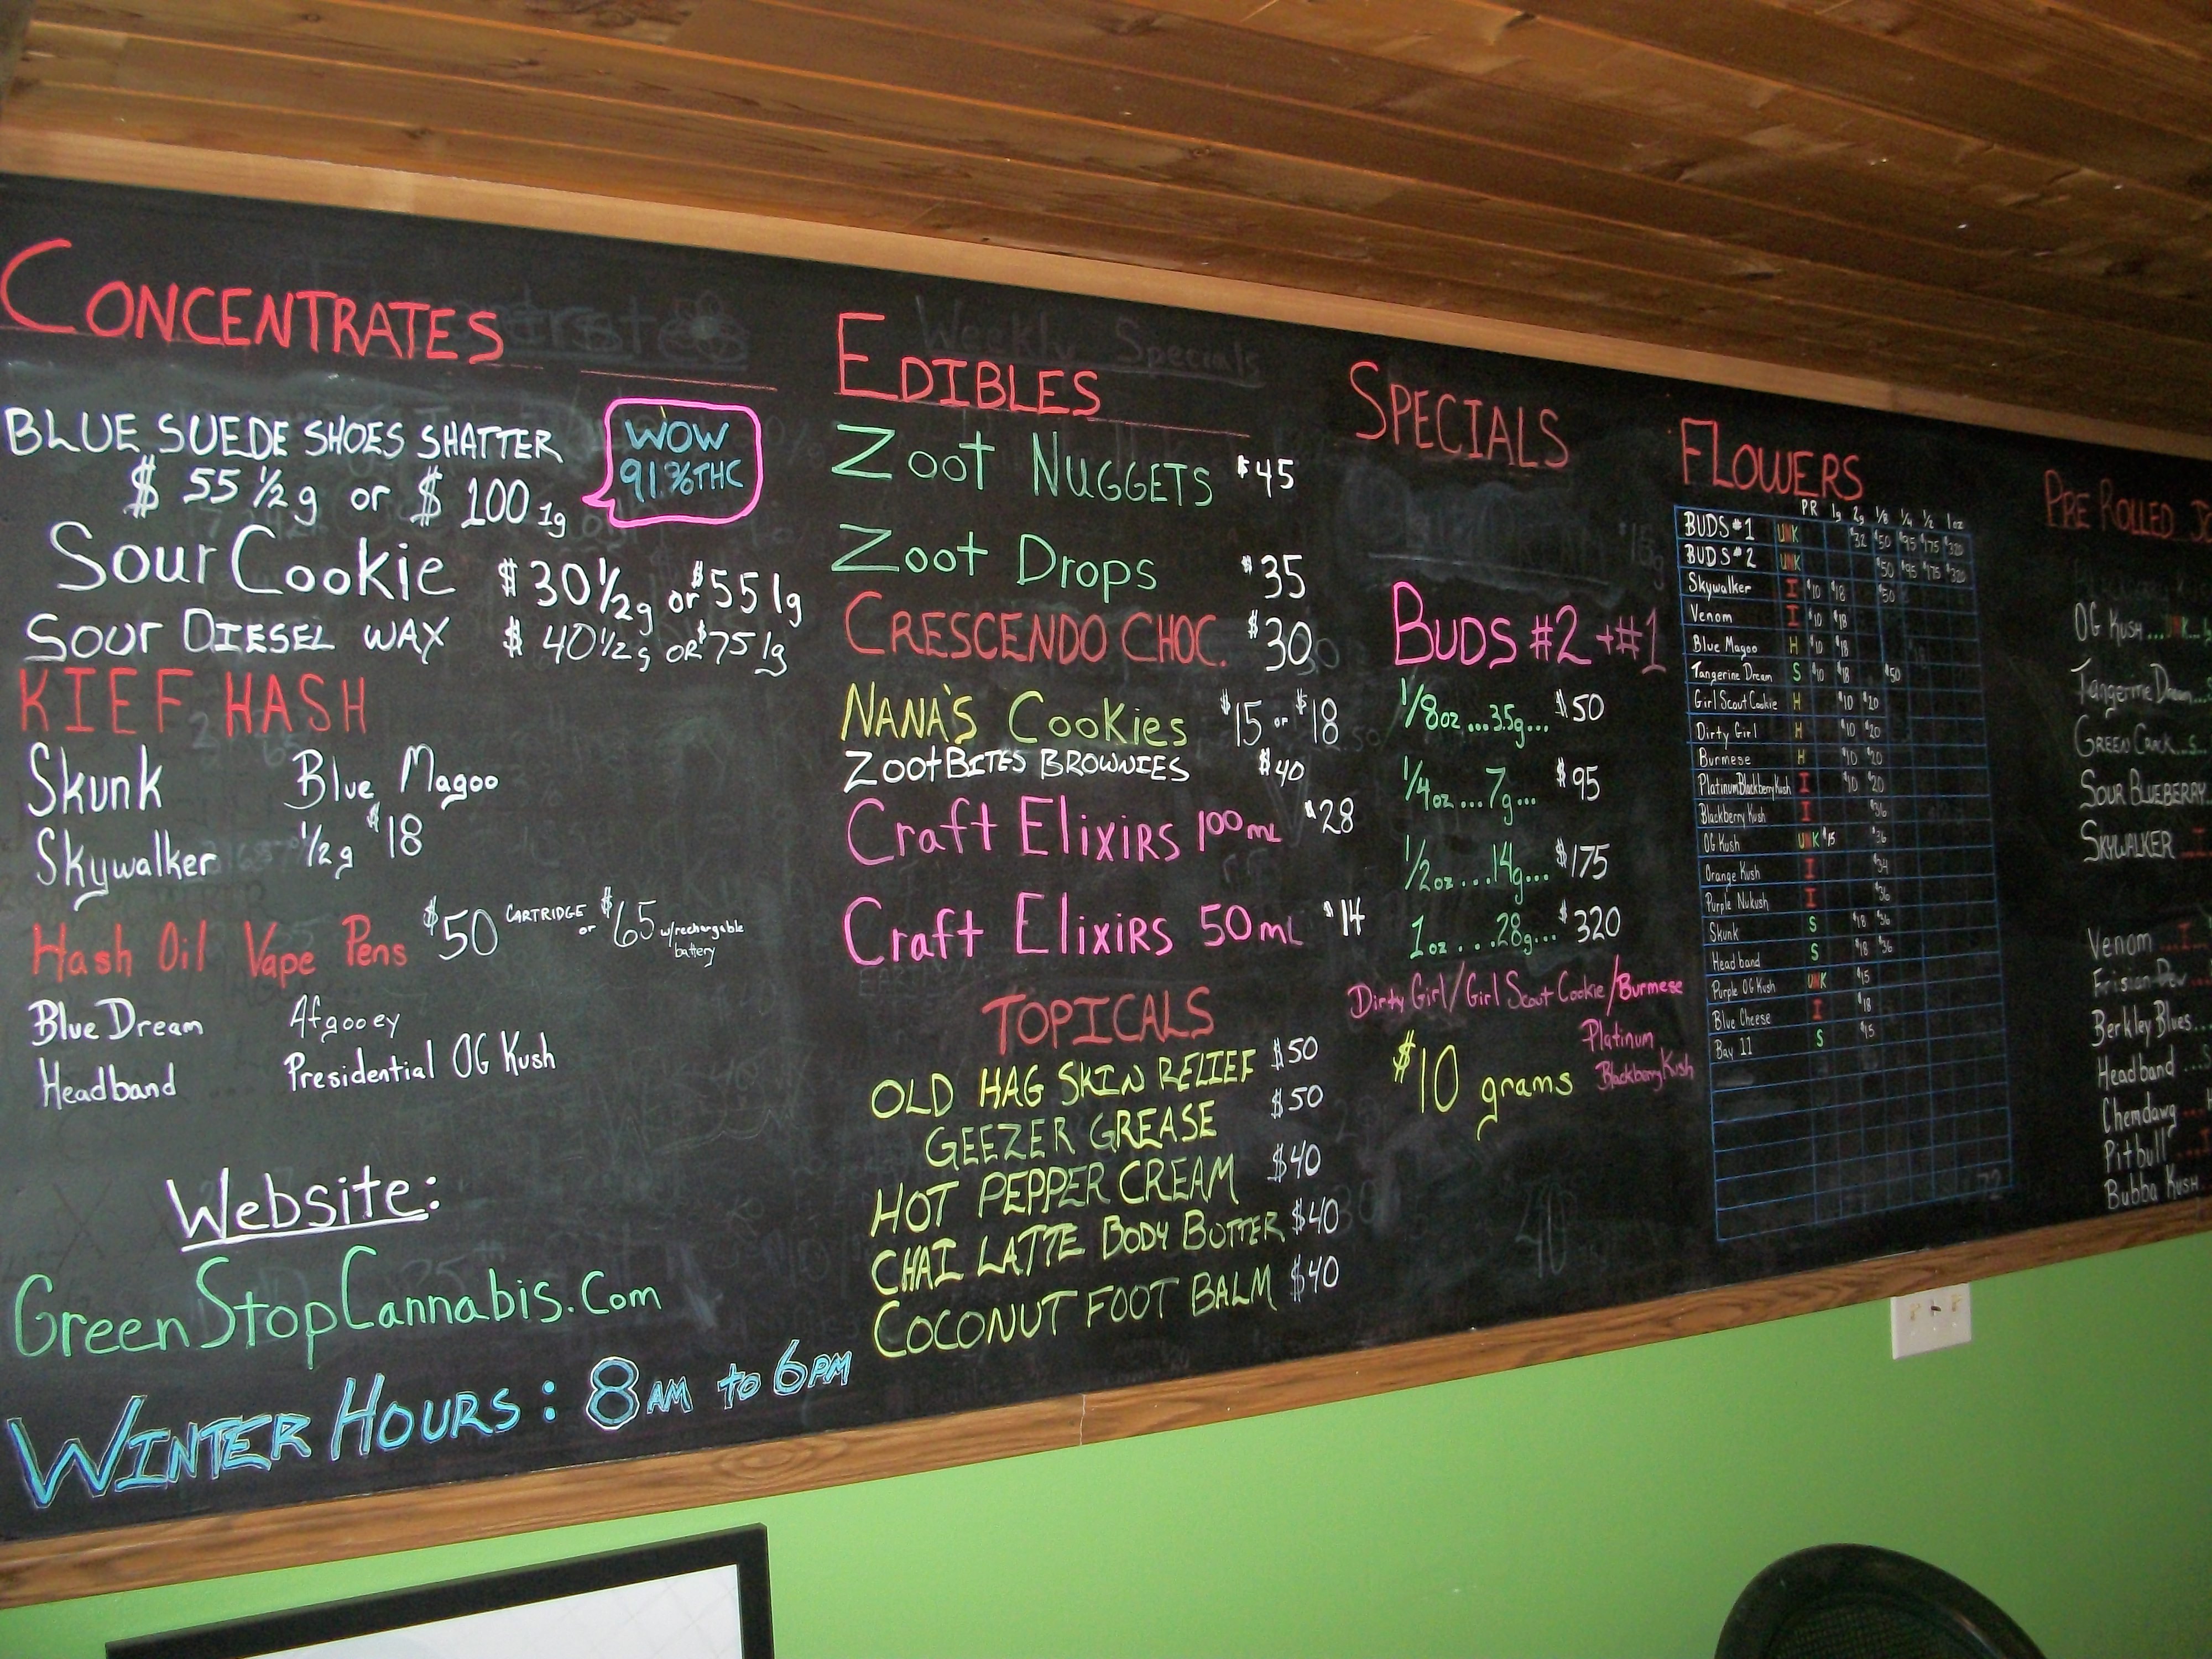 CONCENTRATES
BLUE SUEDE SHOES SHATTER
$55 1/2g or $100 1g
WOW
91%THC
Sour Cookie $30 1/2g or $55 1g
Sour Diesel Wax $40 1/2g or $75 1g
KIEF HASH
Skunk Blue Magoo
Skywalker 1/2g $18
Hash Oil Vape Pens $50 CARTRIDGE or $65 w/rechargable battery
Blue Dream Afgooey
Headband Presidential OG Kush
Website:
GreenStopCannabis.Com
WINTER HOURS: 8AM to 6PM
Weekly Specials
EDIBLES
Zoot NUGGETS $45
Zoot Drops $35
CRESCENDO CHOC. $30
NANA'S Cookies $15 or $18
Zoot BITES BROWNIES $40
Craft Elixirs 100mL $28
Craft Elixirs 50mL $14
TOPICALS
OLD HAG SKIN RELIEF $50
GEEZER GREASE $50
HOT PEPPER CREAM $40
CHAI LATTE BODY BUTTER $40
COCONUT FOOT BALM $40
SPECIALS
BUDS #2 + #1
1/8oz...3.5g... $50
1/4oz...7g... $95
1/2oz...14g... $175
1oz...28g... $320
Dirty Girl/Girl Scout Cookie/Burmese
Platinum
Blackberry Kush
$10 grams
FLOWERS
PR 1g 2g 1/8 1/4 1/2 1oz
BUDS #1 UNK $32 $50 $95 $175 $320
BUDS #2 UNK $50 $95 $175 $320
Skywalker I $10 $18 $50
Venom I $10 $18
Blue Magoo H $10 $18
Tangerine Dream S $10 $18 $50
Girl Scout Cookie H $10 $20
Dirty Girl H $10 $20
Burmese H $10 $20
Platinum Blackberry Kush I $10 $20
Blackberry Kush I $36
OG Kush UNK $15 $36
Orange Kush I $34
Purple Nukush I $36
Skunk S $18 $36
Headband S $18 $36
Purple OG Kush UNK $15
Blue Cheese I $18
Bay 11 S $15
PRE ROLLED
OG Kush....
Tangerine Dream...
GREEN CRACK...S
SOUR BLUEBERRY
SKYWALKER
Venom ...I
Frisian Dew
Berkley Blues..
Headband ...S
Chemdawg
Pitbull
Bubba Kush